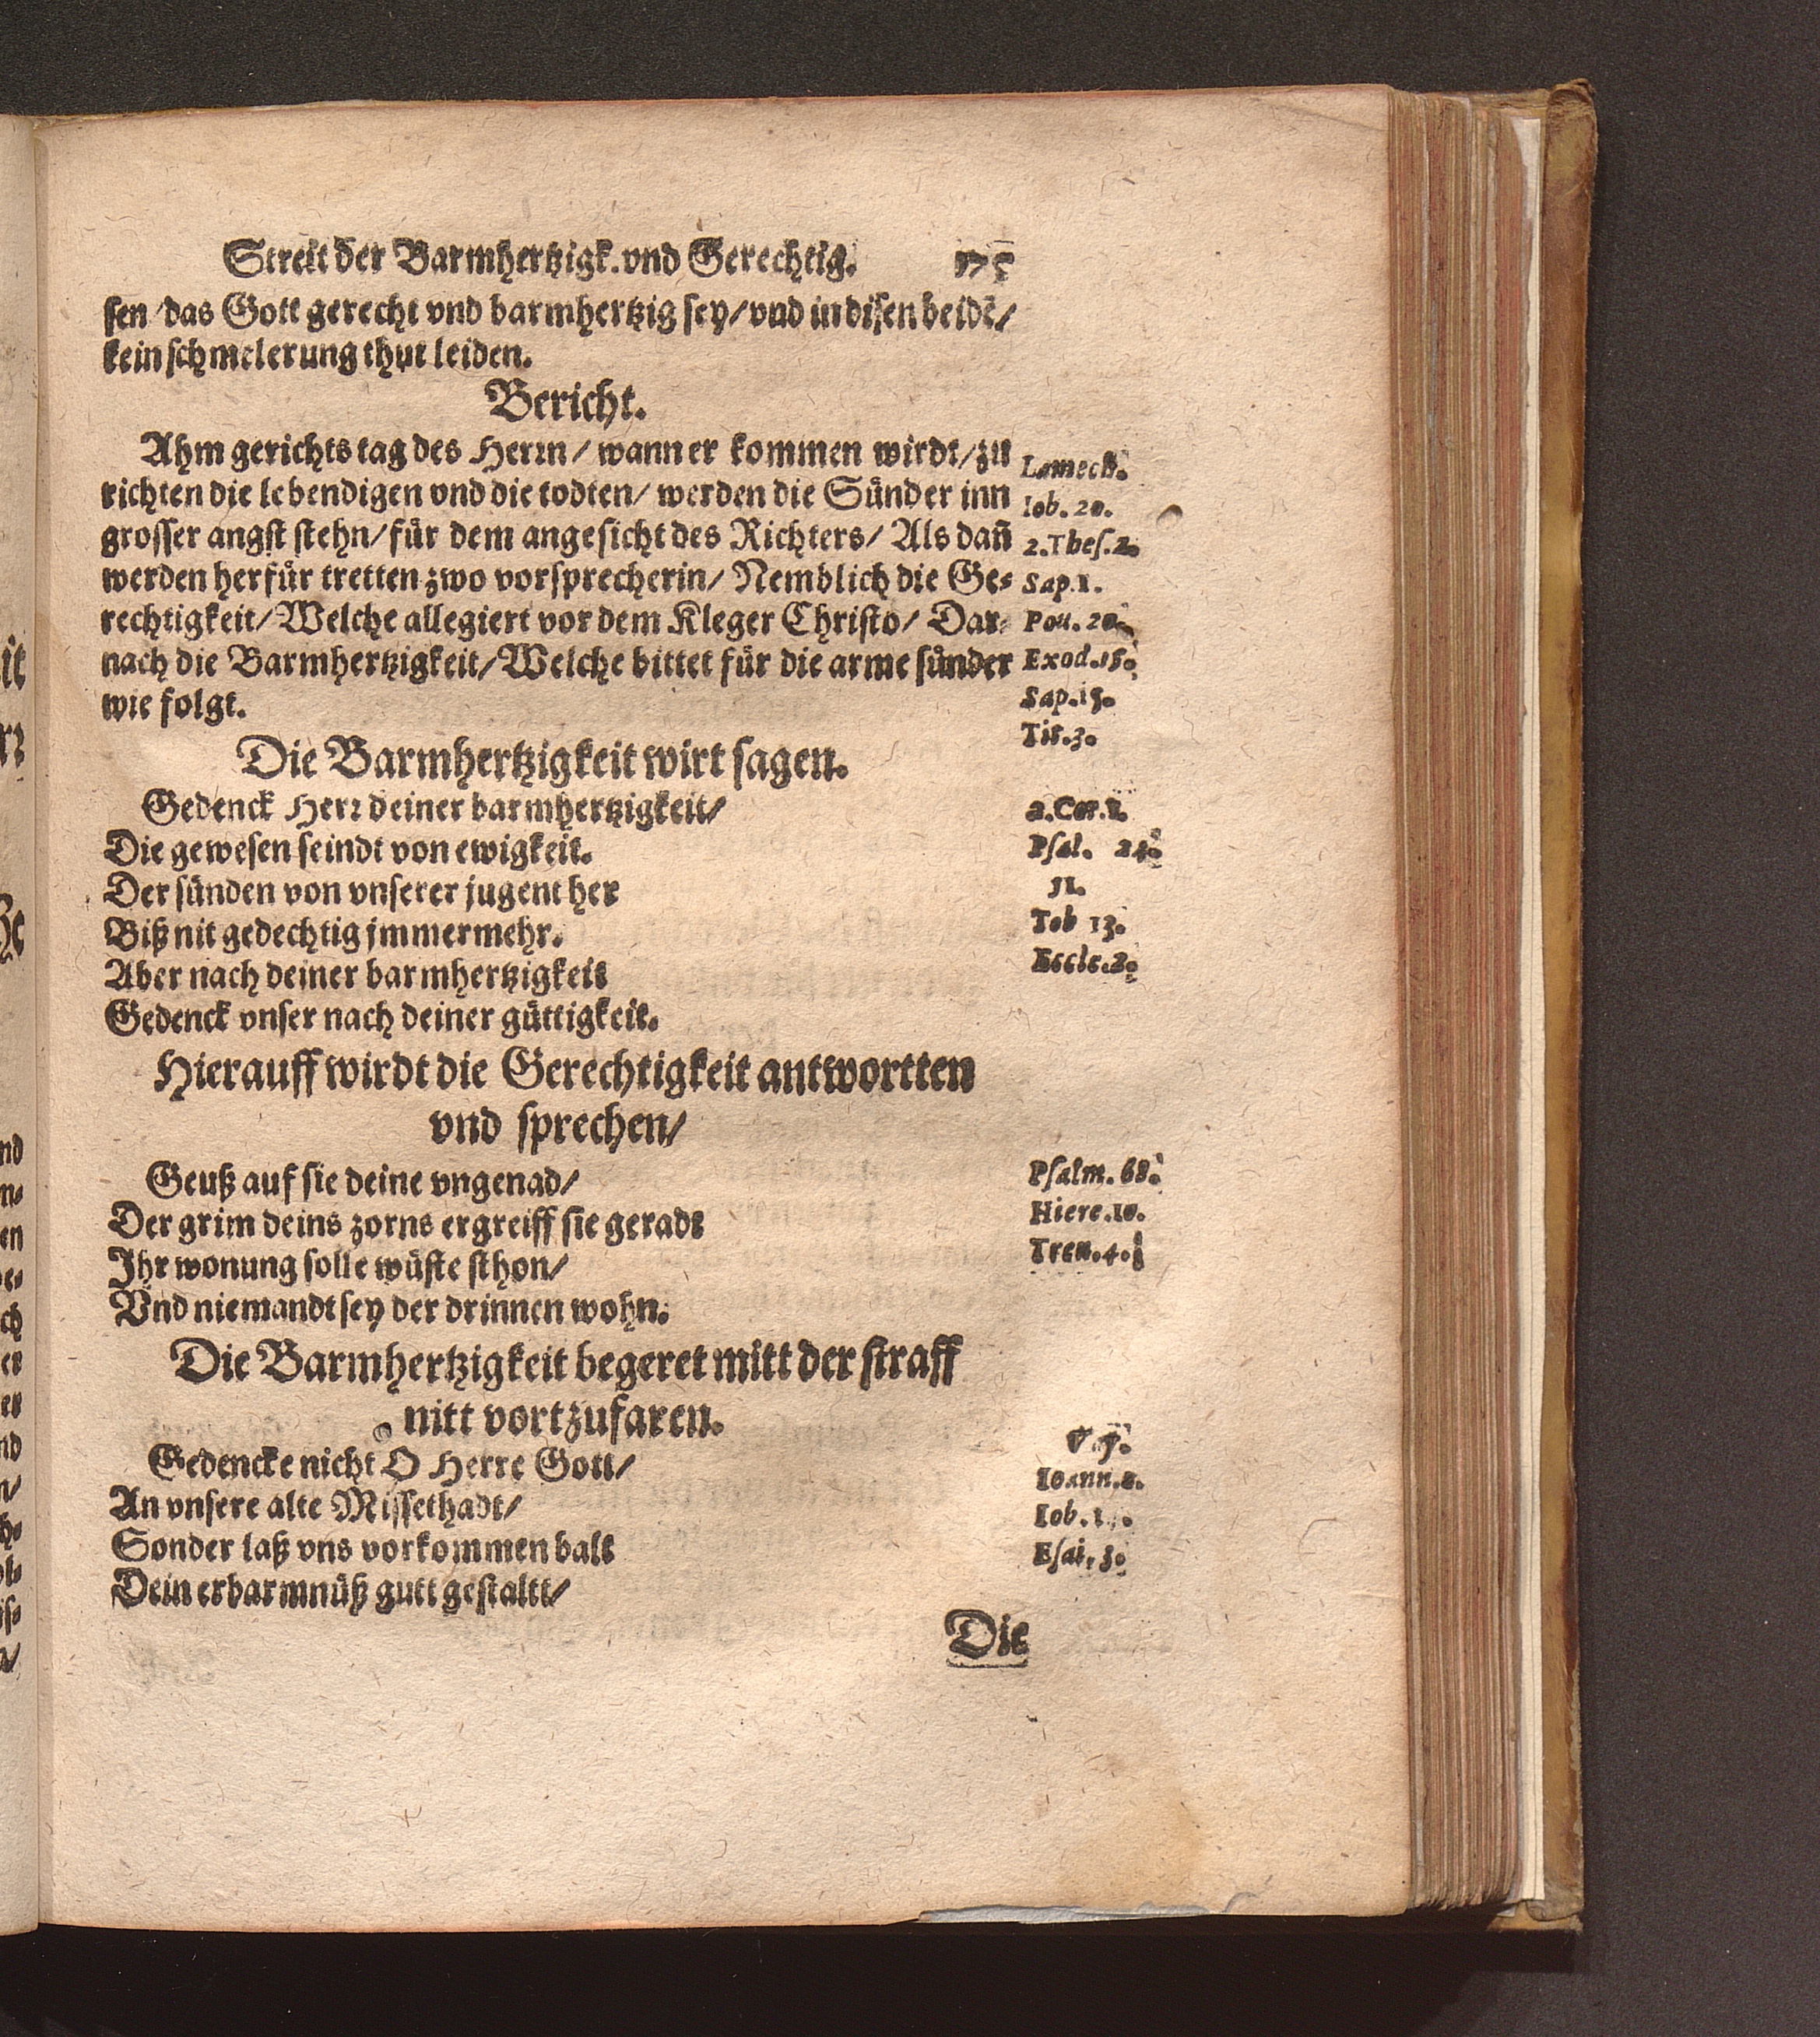 Streit der Barmhertzigk. vnd Gerechtig. 175
sen/das Gott gerecht vnd barmhertzig sey/vnd in disen beidē/
kein schmelerung thut leiden.
Bericht.
Ahm gerichts tag des Herrn/ wann er kommen wirdt/zu
richten die lebendigen vnd die todten/ werden die Sünder inn
grosser angst stehn/für dem angesicht des Richters/ Als dañ
werden herfür tretten zwo vorsprecherin/ Nemblich die Ge-
rechtigkeit/Welche allegiert vor dem Kleger Christo/ Dar-
nach die Barmhertzigkeit/Welche bittet für die arme sünder
wie folgt.
Lamech.
Iob. 20.
2.Thes.2.
Sap.1.
20.
Exod.18.
Sap.15.
Tit.3.
Die Barmhertzigkeit wirt sagen.
Gedenck Herr deiner barmhertzigkeit/
Die gewesen seindt von ewigkeit.
Der sünden von vnserer jugent her
Biß nit gedechtig jmmermehr.
Aber nach deiner barmhertzigkeit
Gedenck vnser nach deiner güttigkeit.
2.Cor.1.
Psal. 24.
51.
Tob 13.
Eccle.2.
Hierauff wirdt die Gerechtigkeit antwortten
vnd sprechen/
Geuß auf sie deine vngenad/
Der grim deins zorns ergreiff sie geradt
Ihr wonung solle wüste sthon/
Vnd niemandt sey der drinnen wohn.
Psalm.68.
Hiere.10.
Tren.4.
Die Barmhertzigkeit begeret mitt der straff
nitt vortzufaren.
Gedencke nicht O Herre Gott/
An vnsere alte Missethadt/
Sonder laß vns vorkommen balt
Dein erbarmnüß gutt gestaltt/
Ioann.
Iob.
Esai. 3.
Die